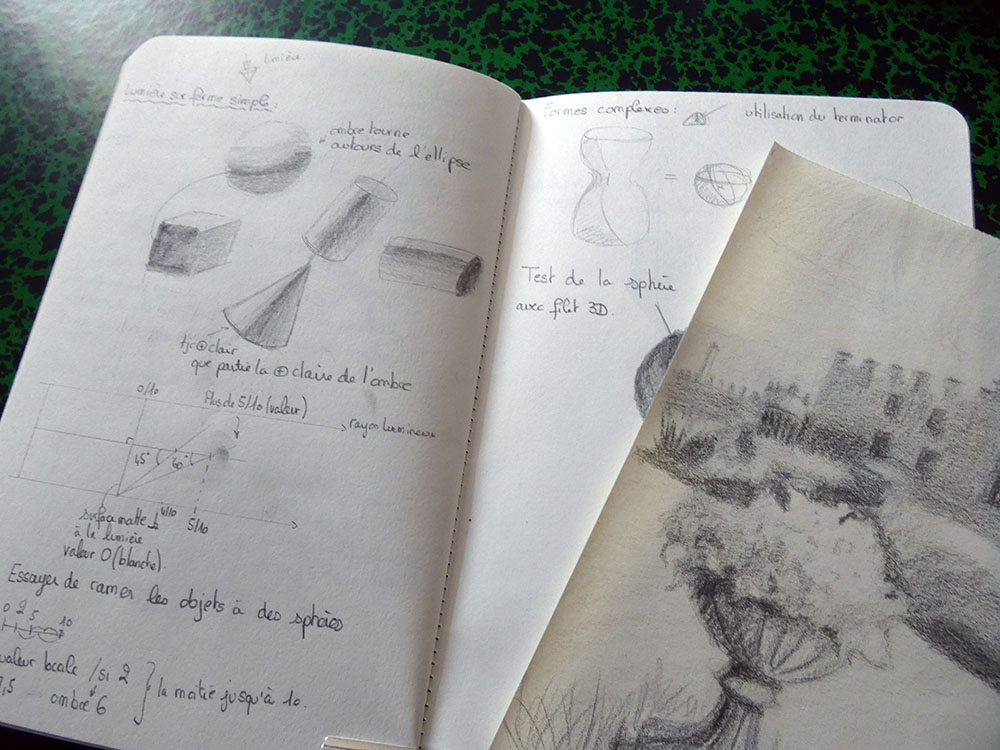 lumière
Lumière sur forme simple:
ombre tourne
autours de l'ellipse
tjr ⊕ clair
que partie la ⊕ claire de l'ombre
0/10
Plus de 5/10 (valeur)
rayon lumineux
45° 60°
5/10
surface matte
à la lumière
valeur 0 (blanche).
Essayer de ramer les objets à des sphères
0 2 5 10
valeur locale / si 2
ombre 6
la moitié jusqu'à 10.
Formes complexes:
utilisation du terminator
=
Test de la sphère
avec filet 3D.